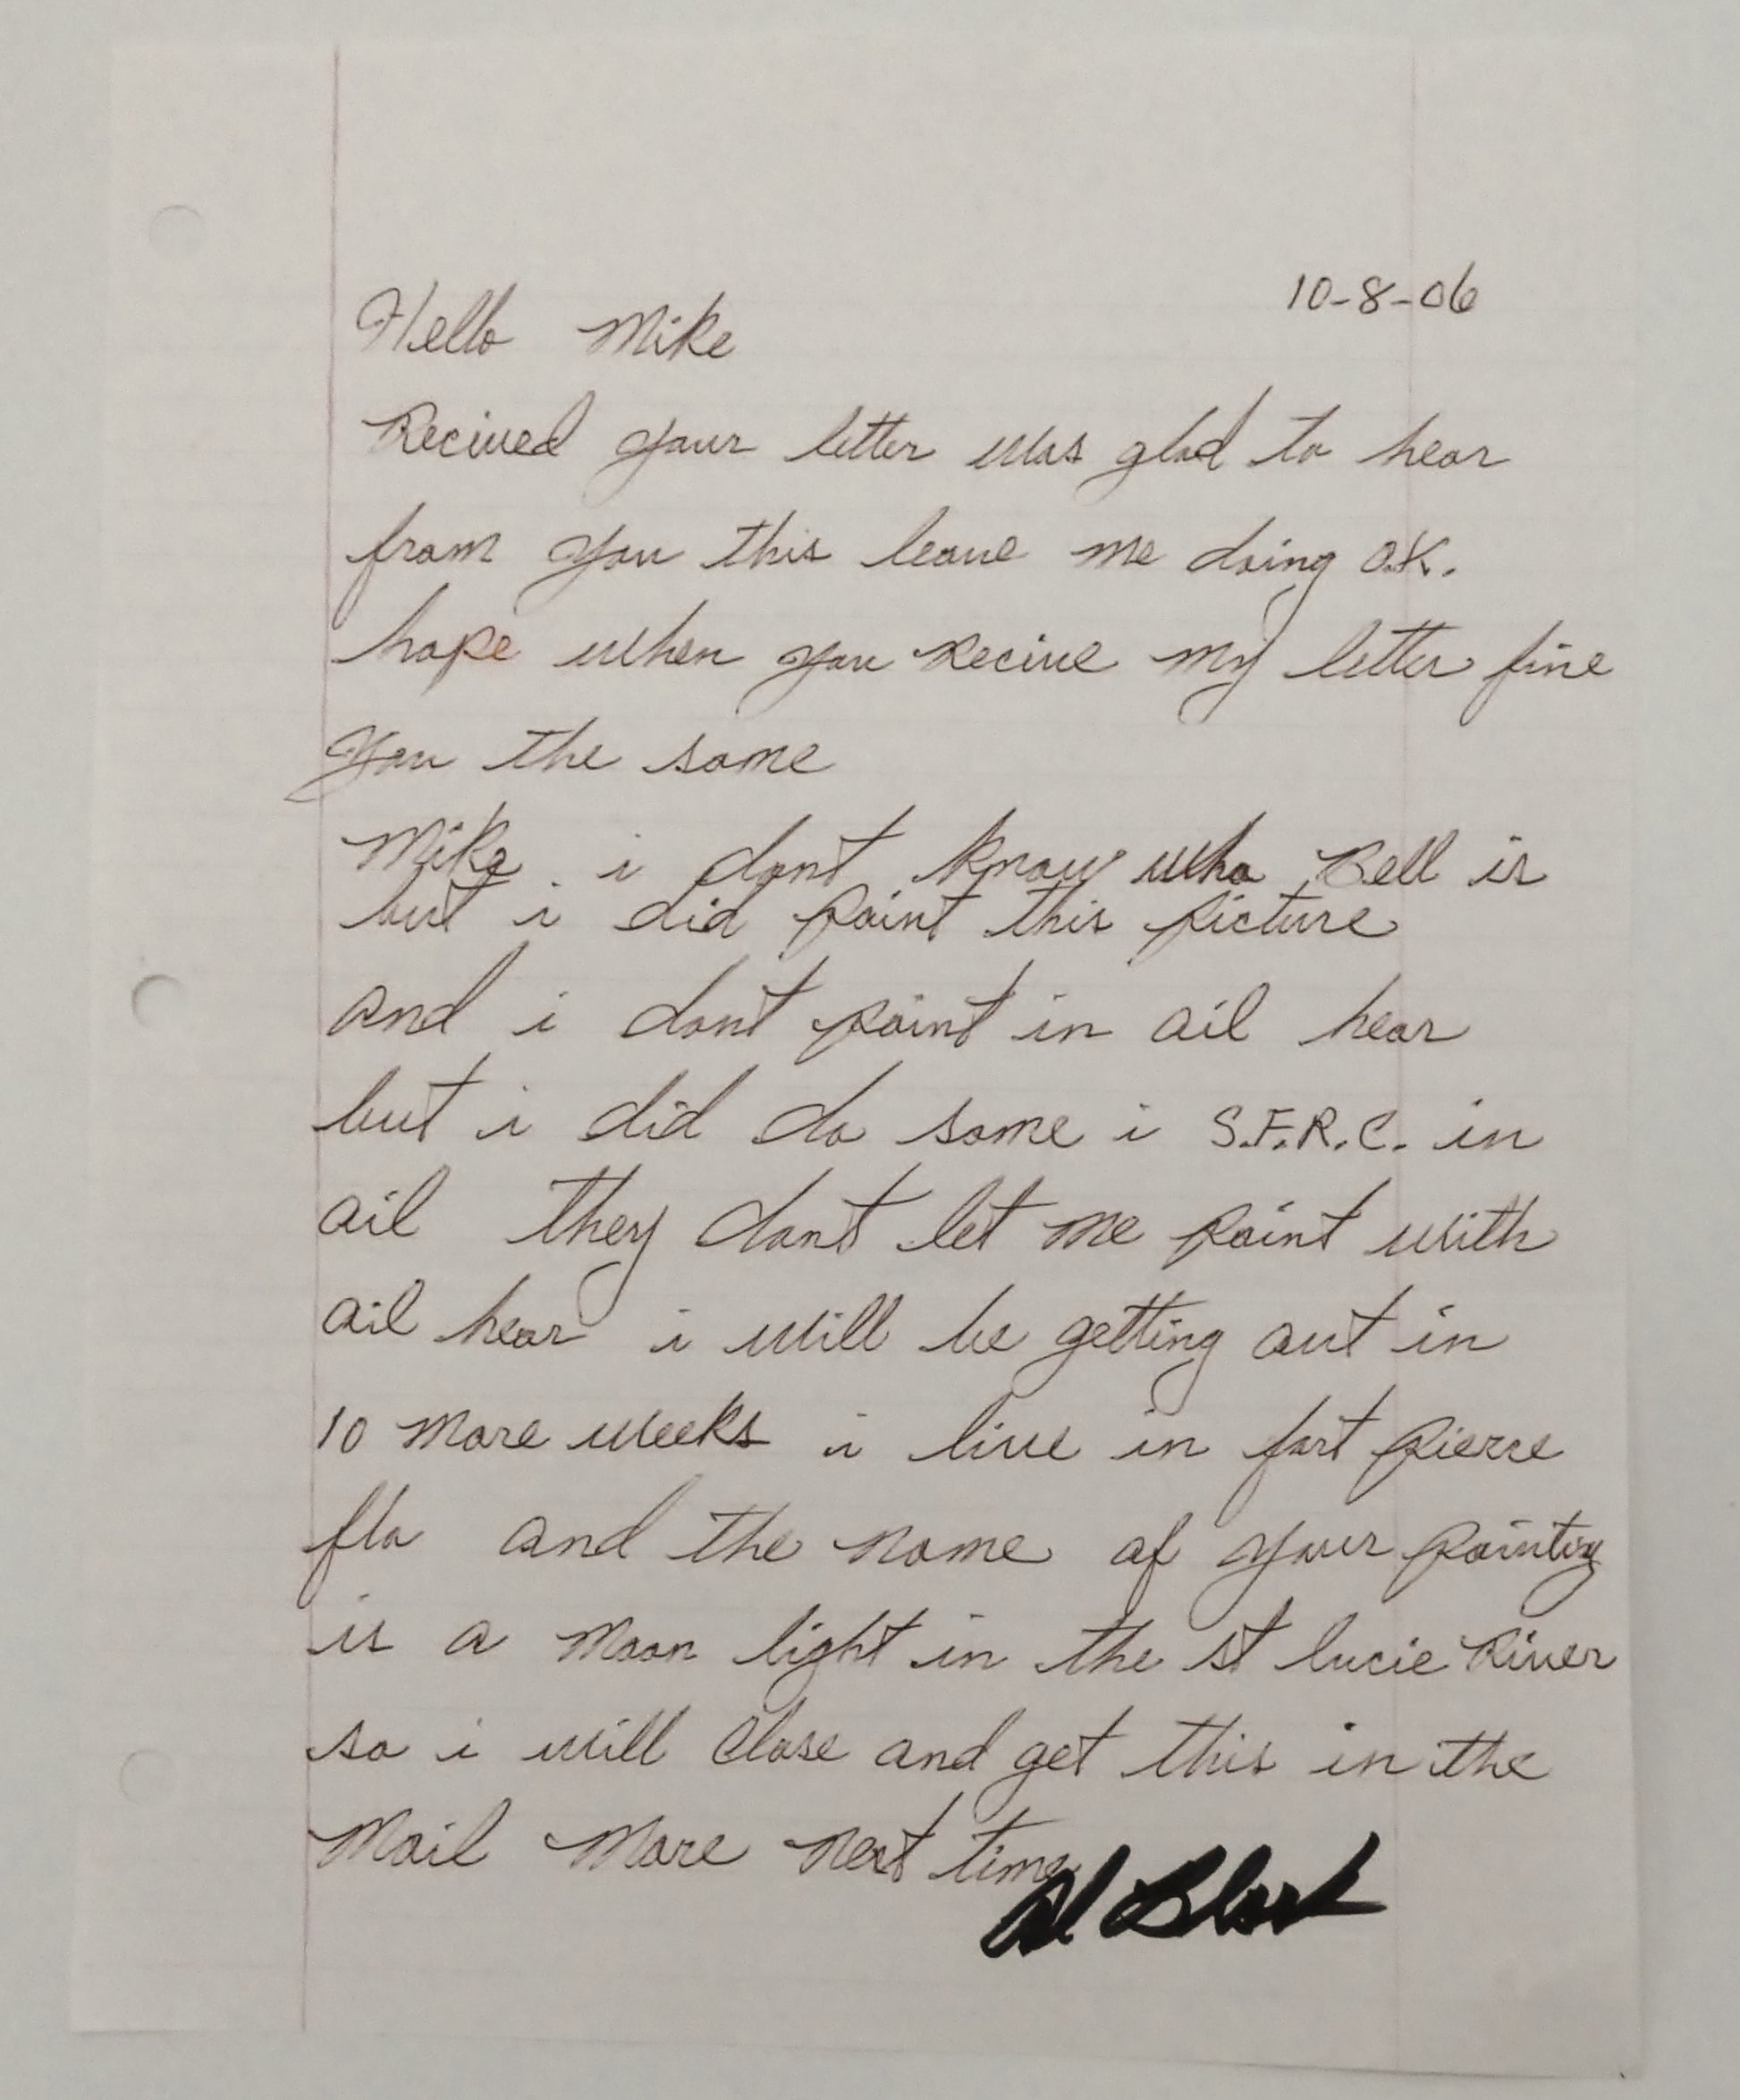 10-8-06
Hello Mike
Recived your letter was glad to hear
from you this leave me doing O.K.
hope when you recive my letter fine
you the same
Mike i dont know who Bell is
but i did paint this picture
and i dont paint in oil hear
but i did do some i S.F.R.C. in
oil they dont let me paint with
oil hear i will be getting out in
10 more weeks i live in fort pierce
fla and the name of your painting
is a moon light in the st lucie River
so i will close and get this in the
mail more next time
Al Black